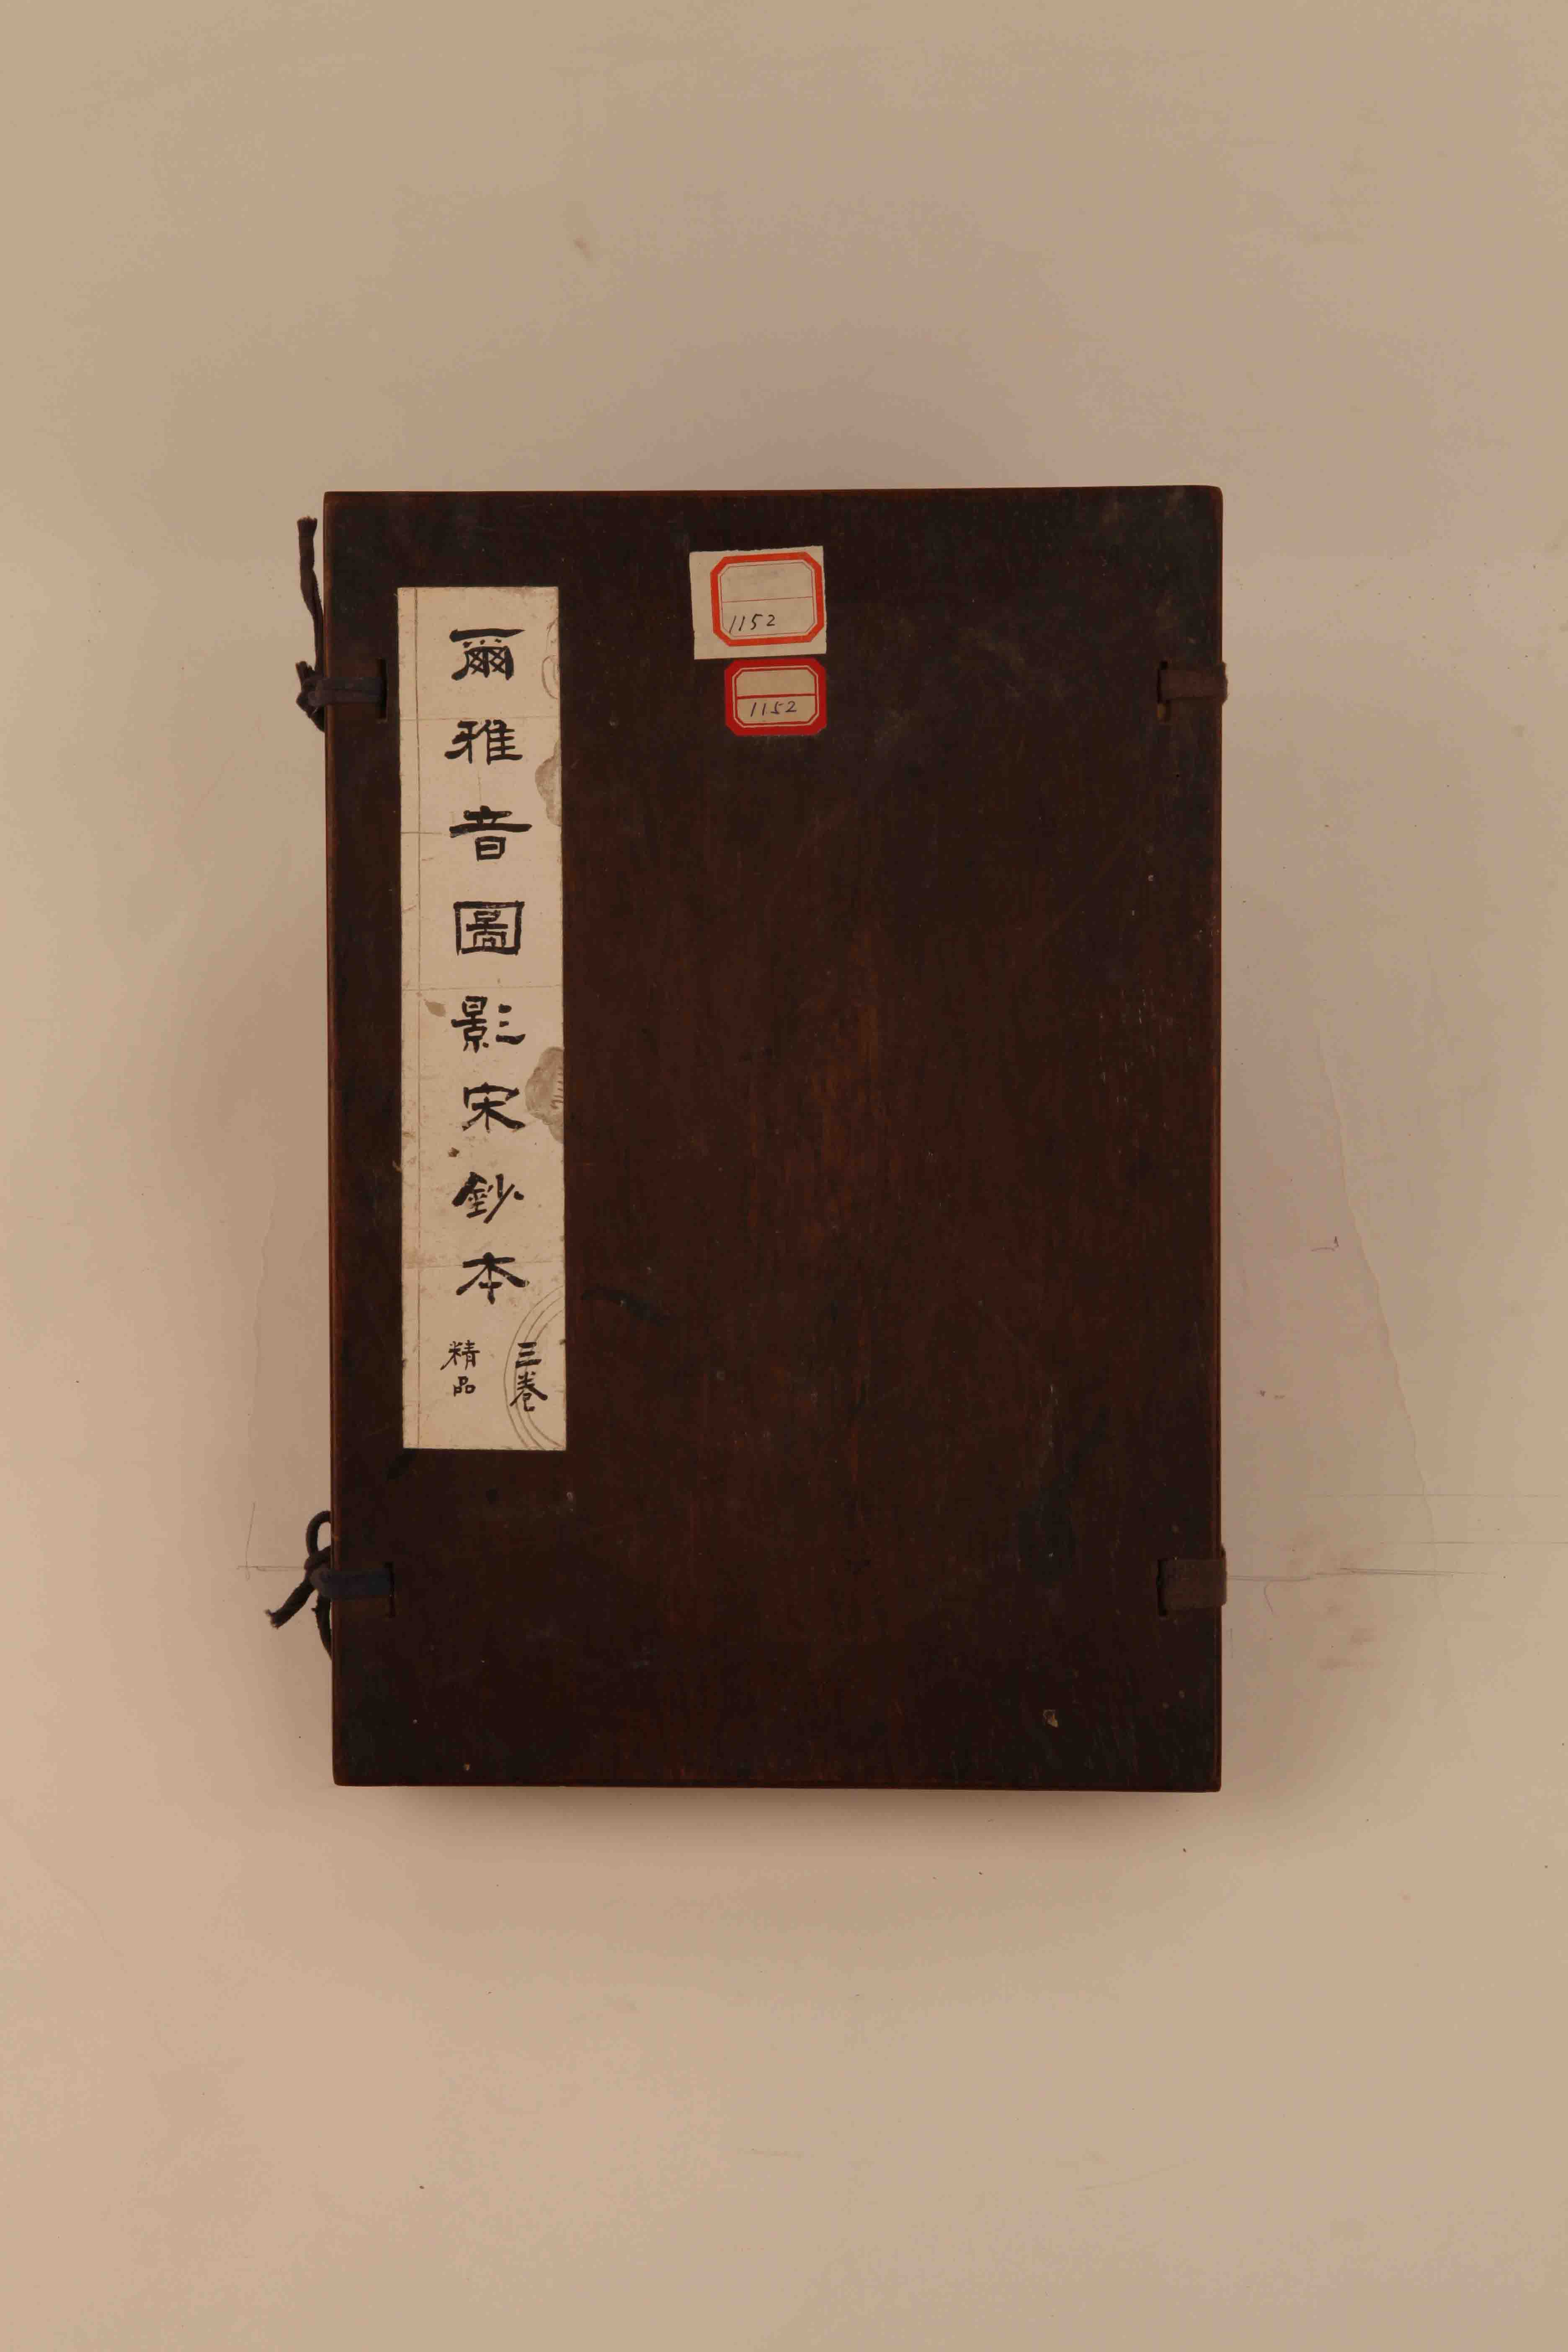 爾雅音圖影宋鈔本
三卷
精品
1152
1152